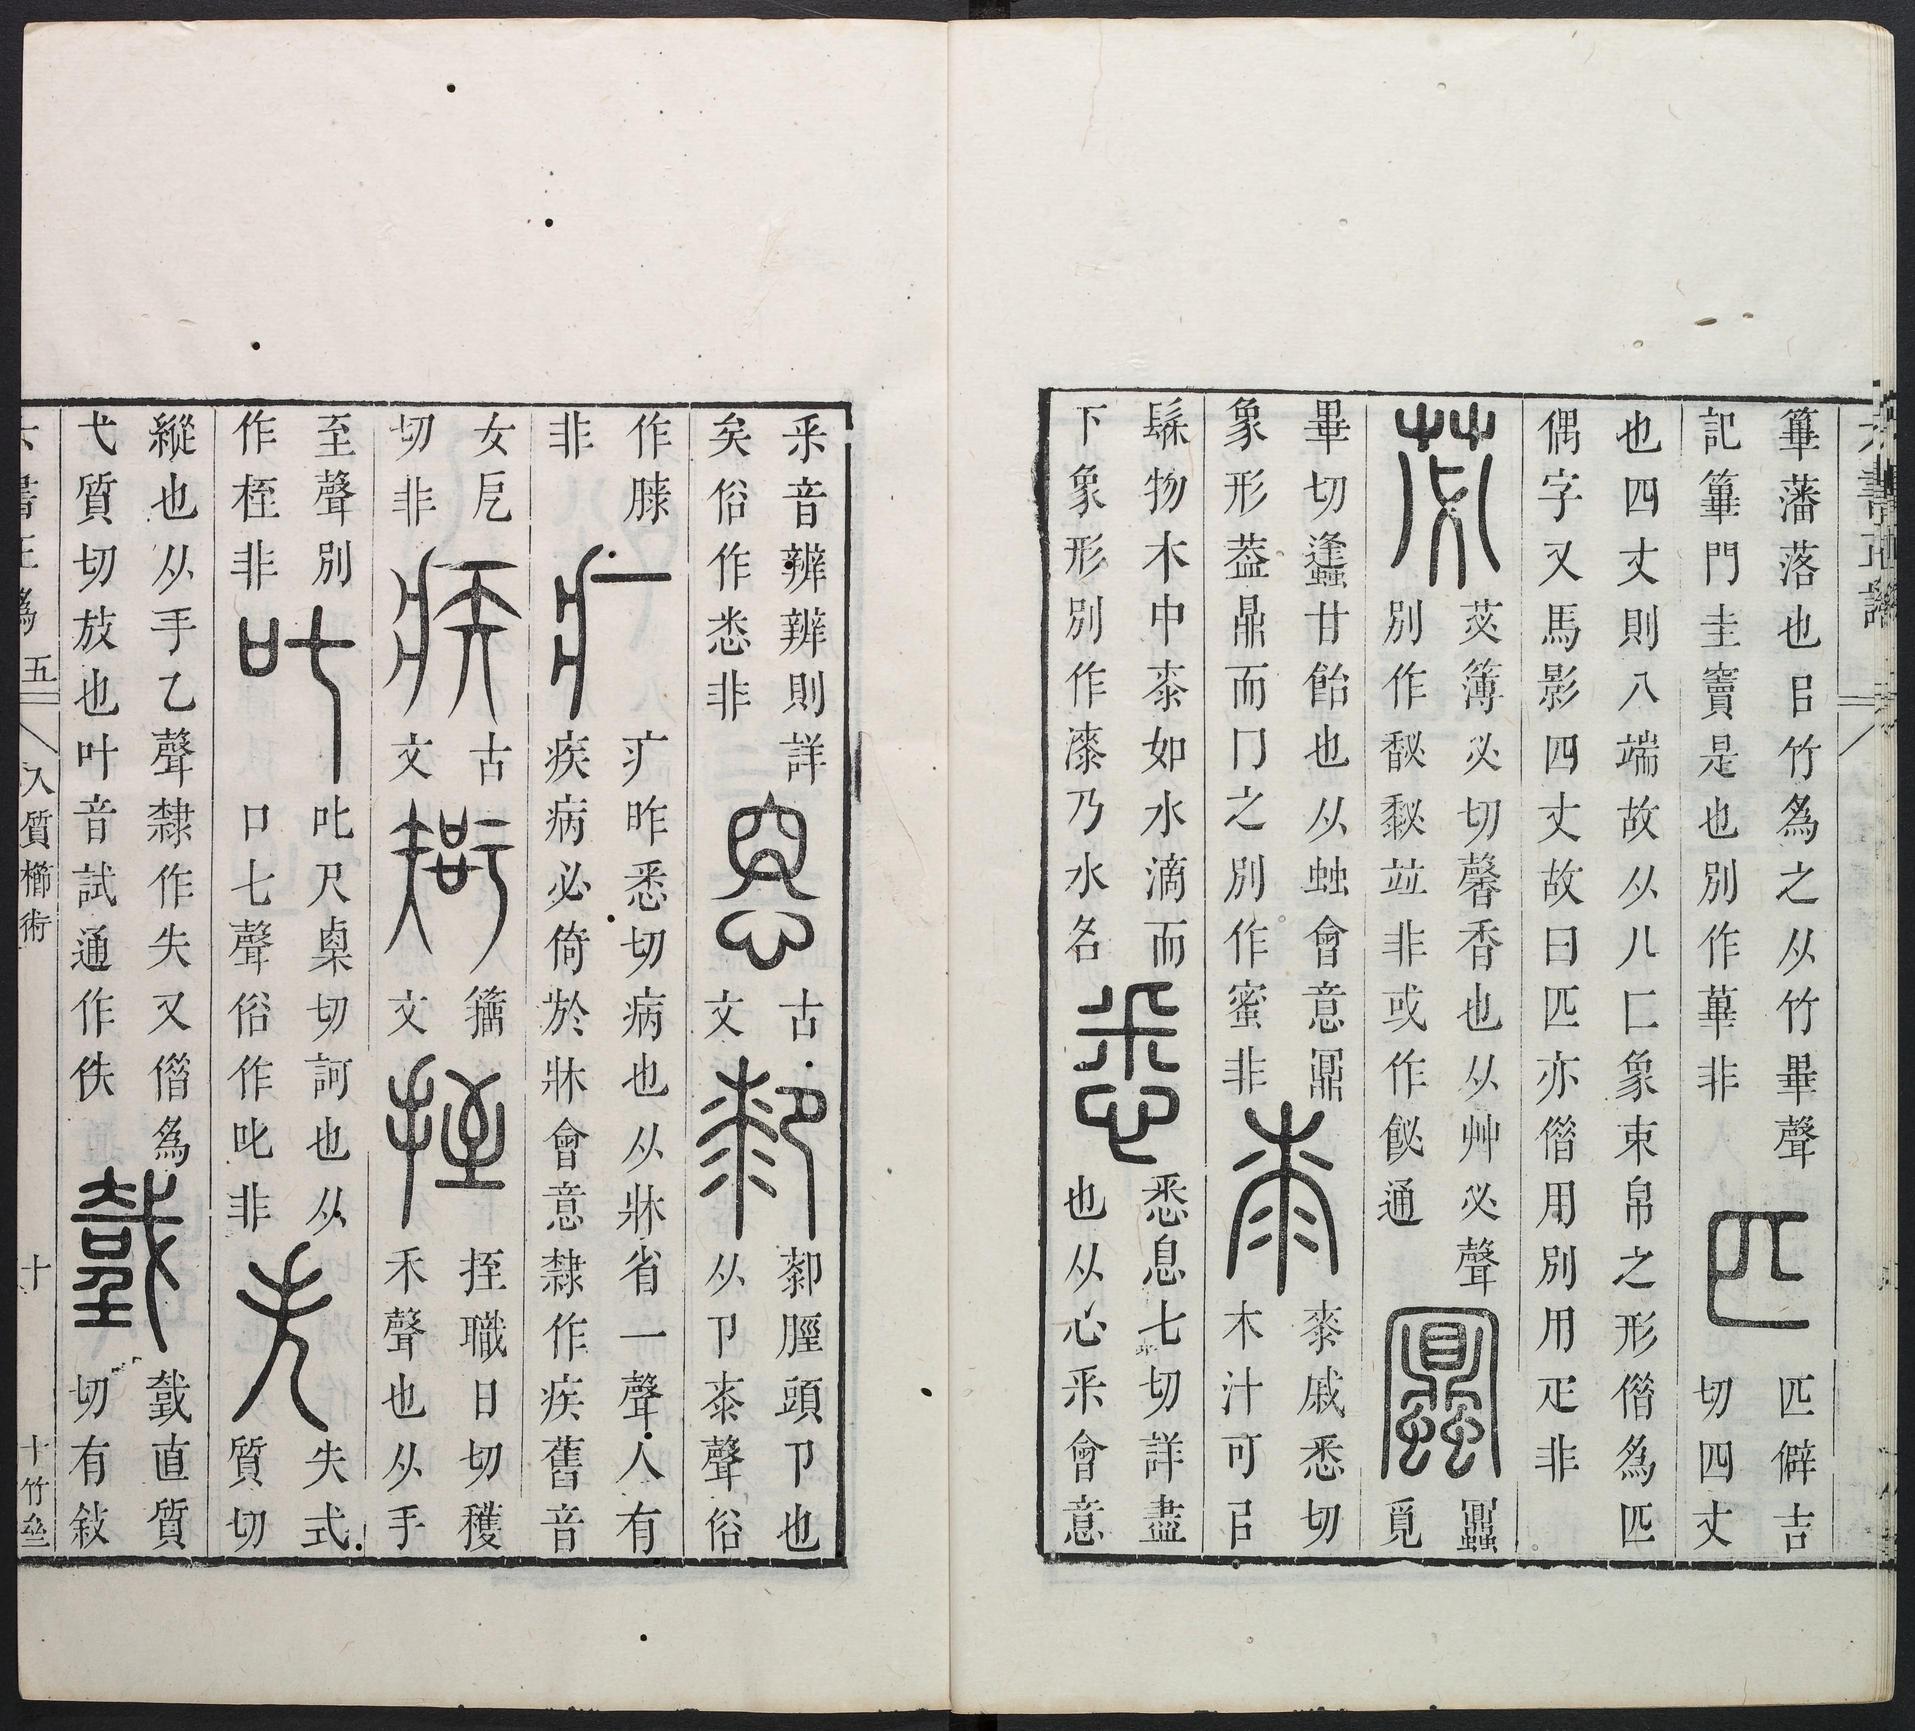 篳藩落也㠯竹爲之从竹畢聲
記篳門圭竇是也別作蓽非
匹
匹僻吉
切四丈
也四丈則八端故从八匚象束帛之形僭爲匹
偶字又馬影四丈故曰匹亦僭用別用疋非
苾
苾簿必切馨香也从艸必聲
別作馝䵥竝非或作飶通
𪔉
畢切逢䖵甘飴也从䖵會意鼏
象形葢鼎而冂之別作蜜非
桼
桼戚悉切
木汁可㠯
䰍物木中桼如水滴而
下象形別作漆乃水名
悉
悉息七切詳盡
也从心釆會意
釆音辨辨則詳
矣俗作悉非
古
文
厀
厀脛頭卪也
从卪桼聲俗
作膝
非
疒
疒昨悉切病也从牀省一聲人有
疾病必倚於牀會意隸作疾舊音
女戹
切非
疾
古
文
籒
文
挃
挃職日切穫
禾聲也从手
至聲別
作桎非
叱
叱尺㮚切訶也从
口七聲俗作叱非
失
失式
質切
縱也从手乙聲隸作失又僭爲
弋質切放也叶音試通作佚
𢧜
𢧜直質
切有敍
六書正譌
五
入質櫛術
十
十竹